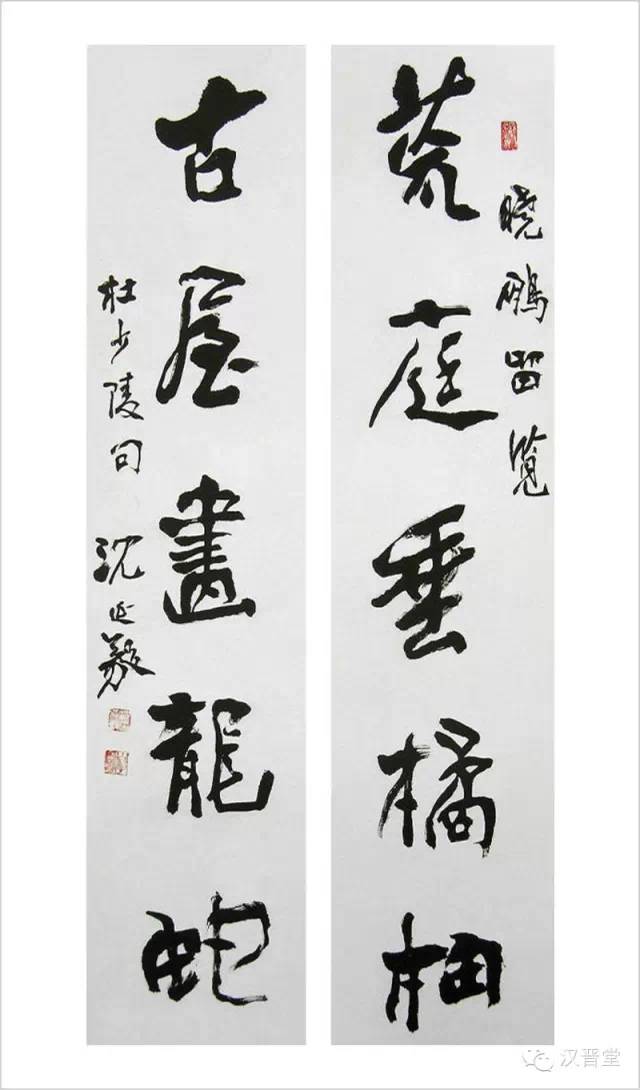 晓鹏留览
荒庭垂橘柚
古屋畫龍蛇
杜少陵句
沈延毅
汉晋堂